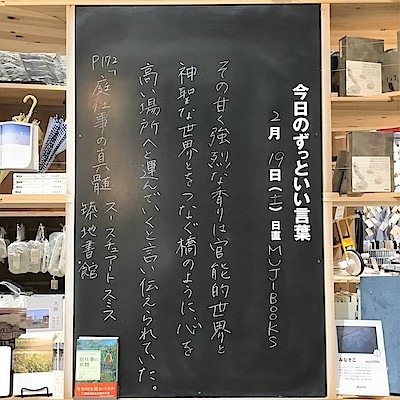 今日のずっといい言葉
2月19日(土) 日直 MUJIBOOKS
その甘く強烈な香りは官能的世界と
神聖な世界とをつなぐ橋のように、心を
高い場所へと運んでいくと言い伝えられていた。
P172「庭仕事の真髄 スー・スチュアート・スミス
築地書館
庭仕事の真髄
みなそこ